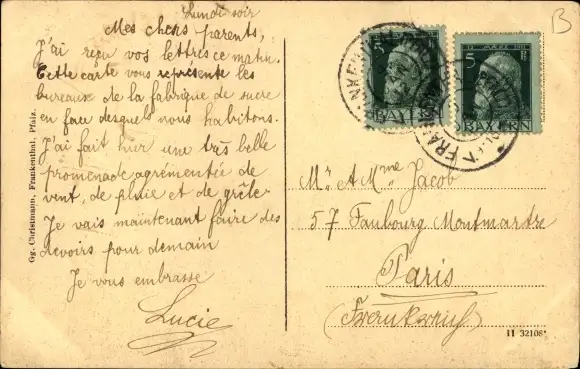 Lundi soir
Mes chers parents,
J'ai reçu vos lettres ce matin.
Cette carte vous représente les
bureaux de la fabrique de sucre
en face desquels nous habitons.
J'ai fait hier une très belle
promenade agrémentée de
vent, de pluie et de grêle
Je vais maintenant faire des
devoirs pour demain
Je vous embrasse
Lucie
Gg. Christmann, Frankenthal, Pfalz.
B
5
BAYERN
5
BAYERN
Mr et Mme Jacob
57 Faubourg Montmartre
Paris
(Frankreich)
II 32108